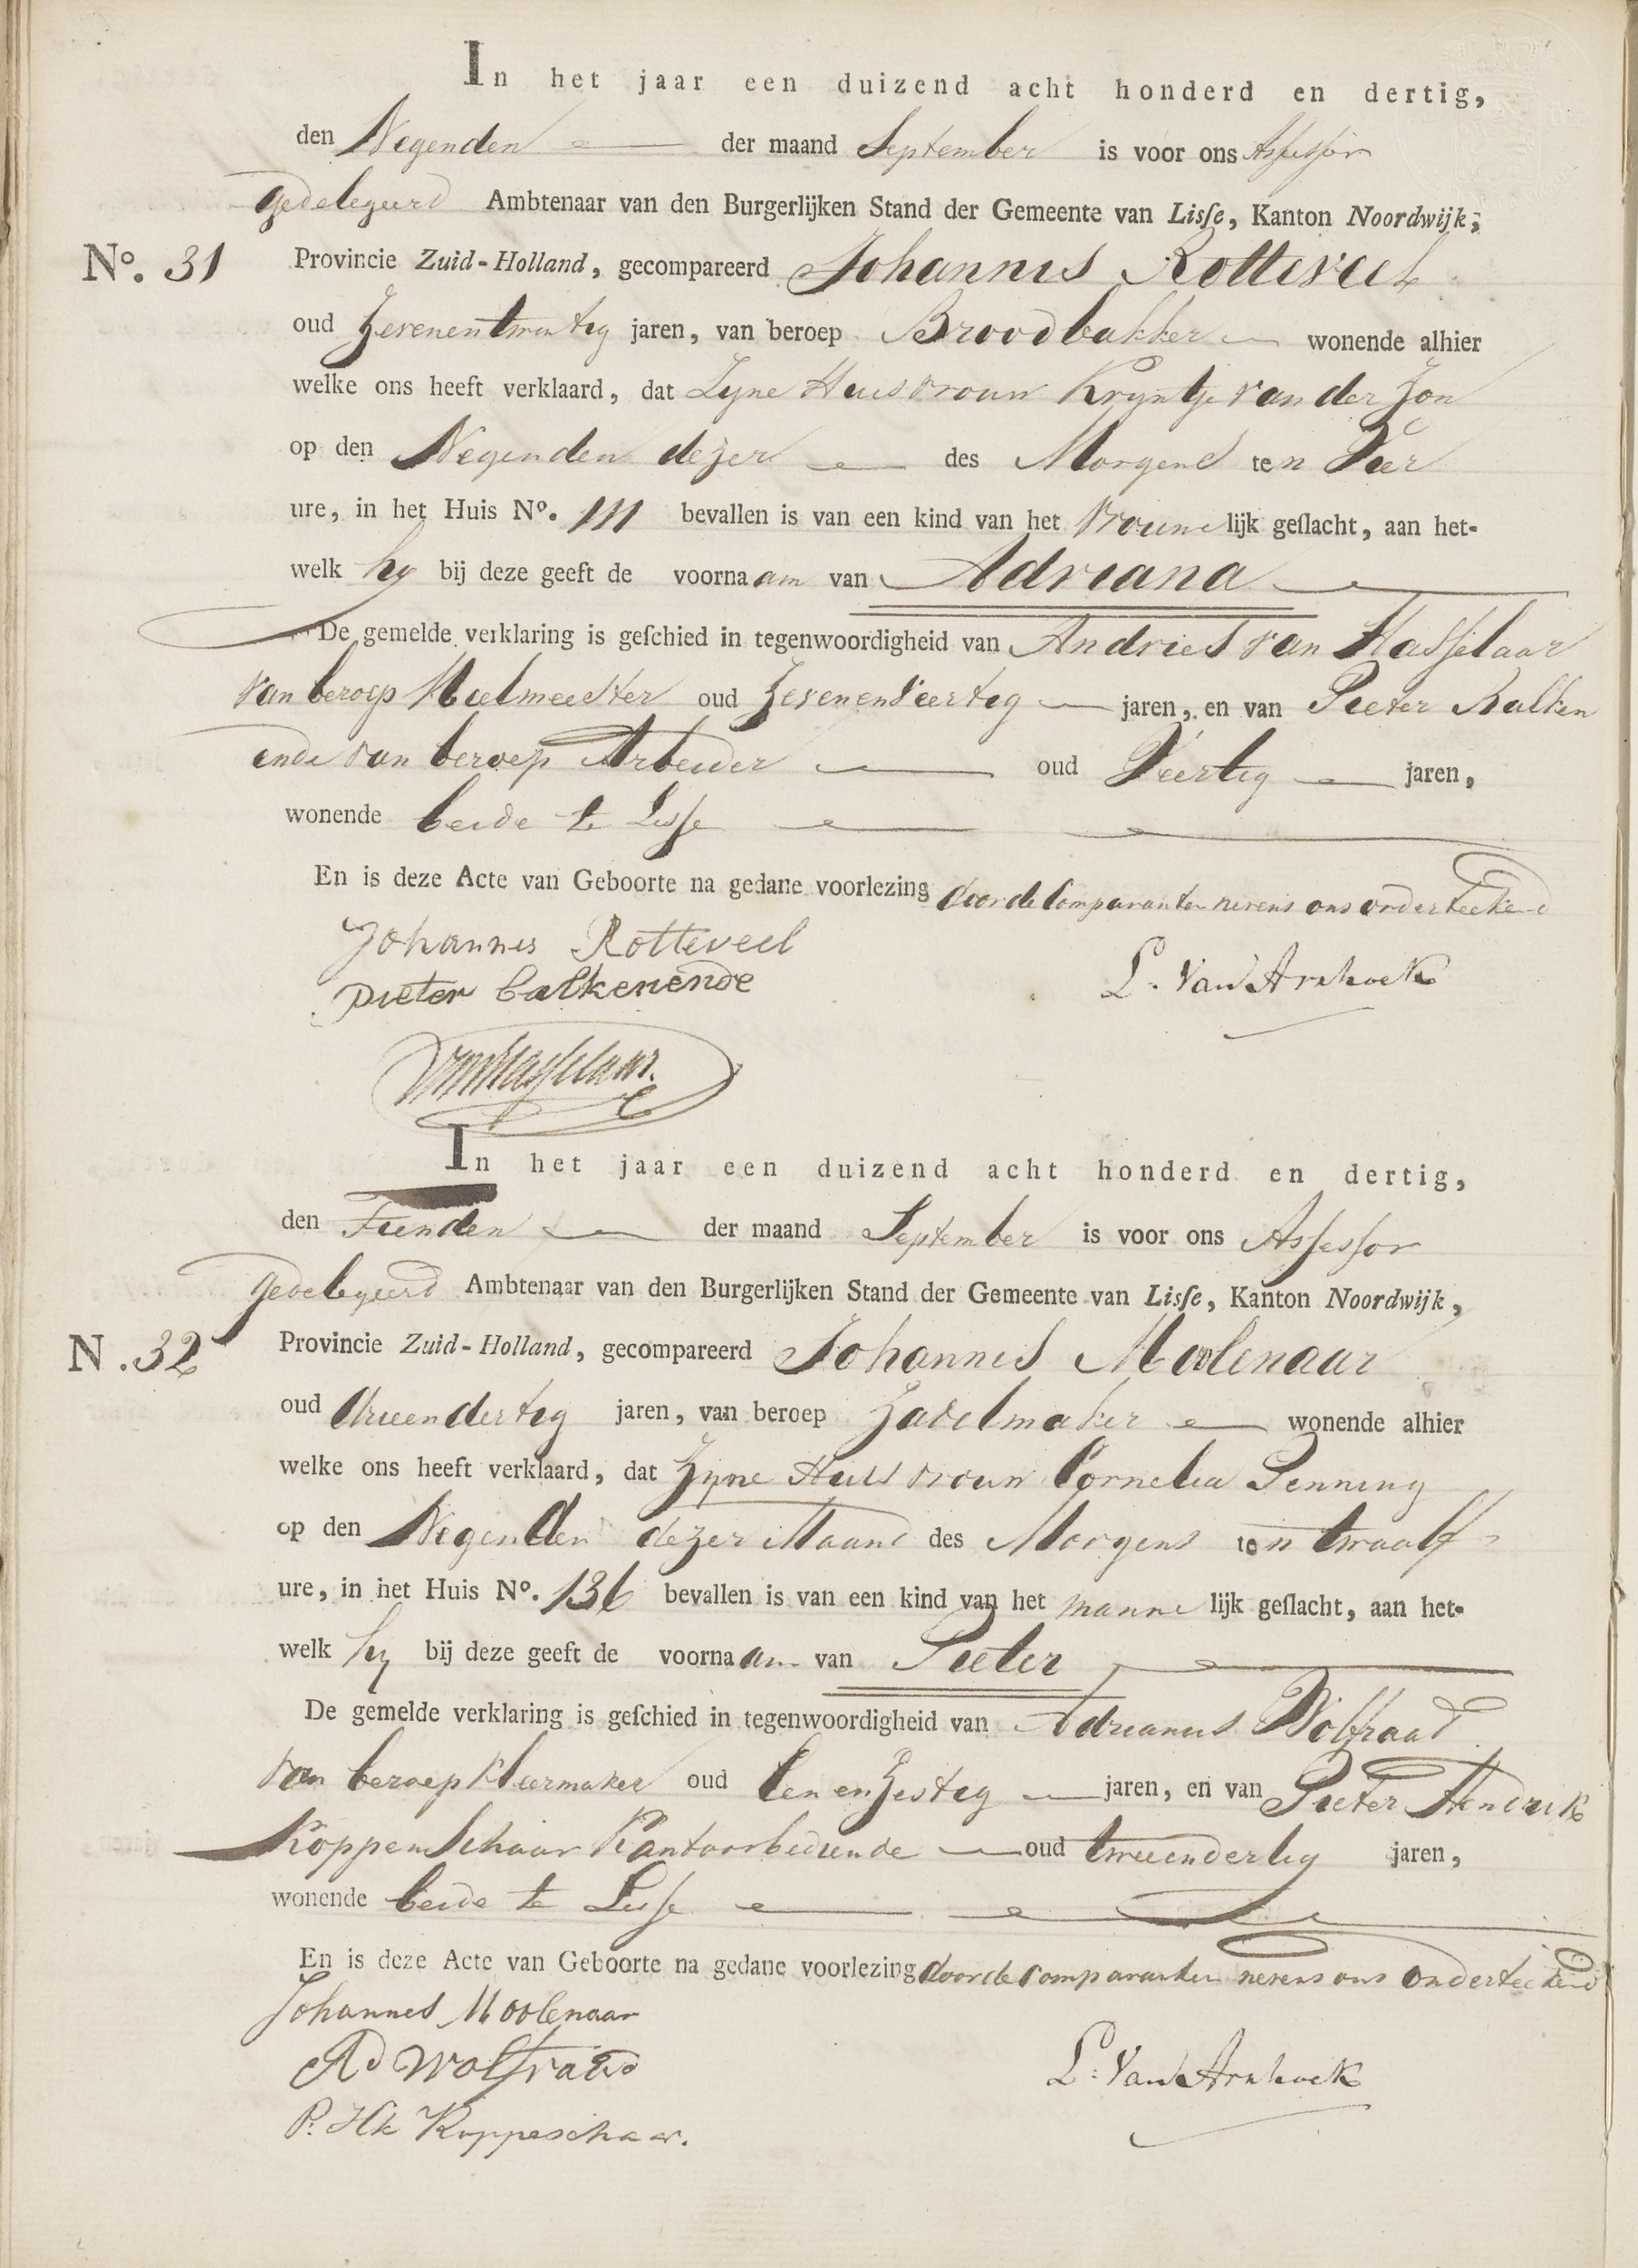 In het jaar een duizend acht honderd en dertig,
den Negenden der maand September is voor ons Assessor
gedelegeerd Ambtenaar van den Burgerlijken Stand der Gemeente van Lisse, Kanton Noordwijk,
No. 31 Provincie Zuid-Holland, gecompareerd Johannes Rotteveel
oud Zevenentwintig jaren, van beroep Broodbakker wonende alhier
welke ons heeft verklaard, dat Zyne Huisvrouw Kryntje van der Zon
op den Negenden dezer des Morgens ten Vier
ure, in het Huis No. 111 bevallen is van een kind van het vrouwelijk geslacht, aan het-
welk hy bij deze geeft de voornaam van Adriana
De gemelde verklaring is geschied in tegenwoordigheid van Andries van Hasselaar
van beroep Heelmeester oud Zevenenveertig jaren, en van Pieter Kalken
ende van beroep Arbeider oud Veertig jaren,
wonende beide te Lisse
En is deze Acte van Geboorte na gedane voorlezing door de Comparanten nevens ons onderteekend
Johannes Rotteveel
Pieter Calkenende L. Van Arnhoek
In het jaar een duizend acht honderd en dertig,
den Tienden der maand September is voor ons Assessor
gedelegeerd Ambtenaar van den Burgerlijken Stand der Gemeente van Lisse, Kanton Noordwijk,
N. 32 Provincie Zuid-Holland, gecompareerd Johannes Moolenaar
oud drieendertig jaren, van beroep Zadelmaker wonende alhier
welke ons heeft verklaard, dat Zyne Huisvrouw Cornelia Penning
op den Negenden dezer Maand des Morgens ten twaalf
ure, in het Huis No. 136 bevallen is van een kind van het mannelijk geslacht, aan het-
welk hy bij deze geeft de voornaam van Pieter
De gemelde verklaring is geschied in tegenwoordigheid van Adrianus Wolfraad
van beroep Kleermaker oud Eenenzestig jaren, en van Pieter Hendrik
Koppenschaar Kantoorbediende oud tweeendertig jaren,
wonende beide te Lisse
En is deze Acte van Geboorte na gedane voorlezing door de Comparanten nevens ons onderteekend
Johannes Moolenaar
Ad Wolfraad L. Van Arnhoek
P. Hk Koppeschaar.